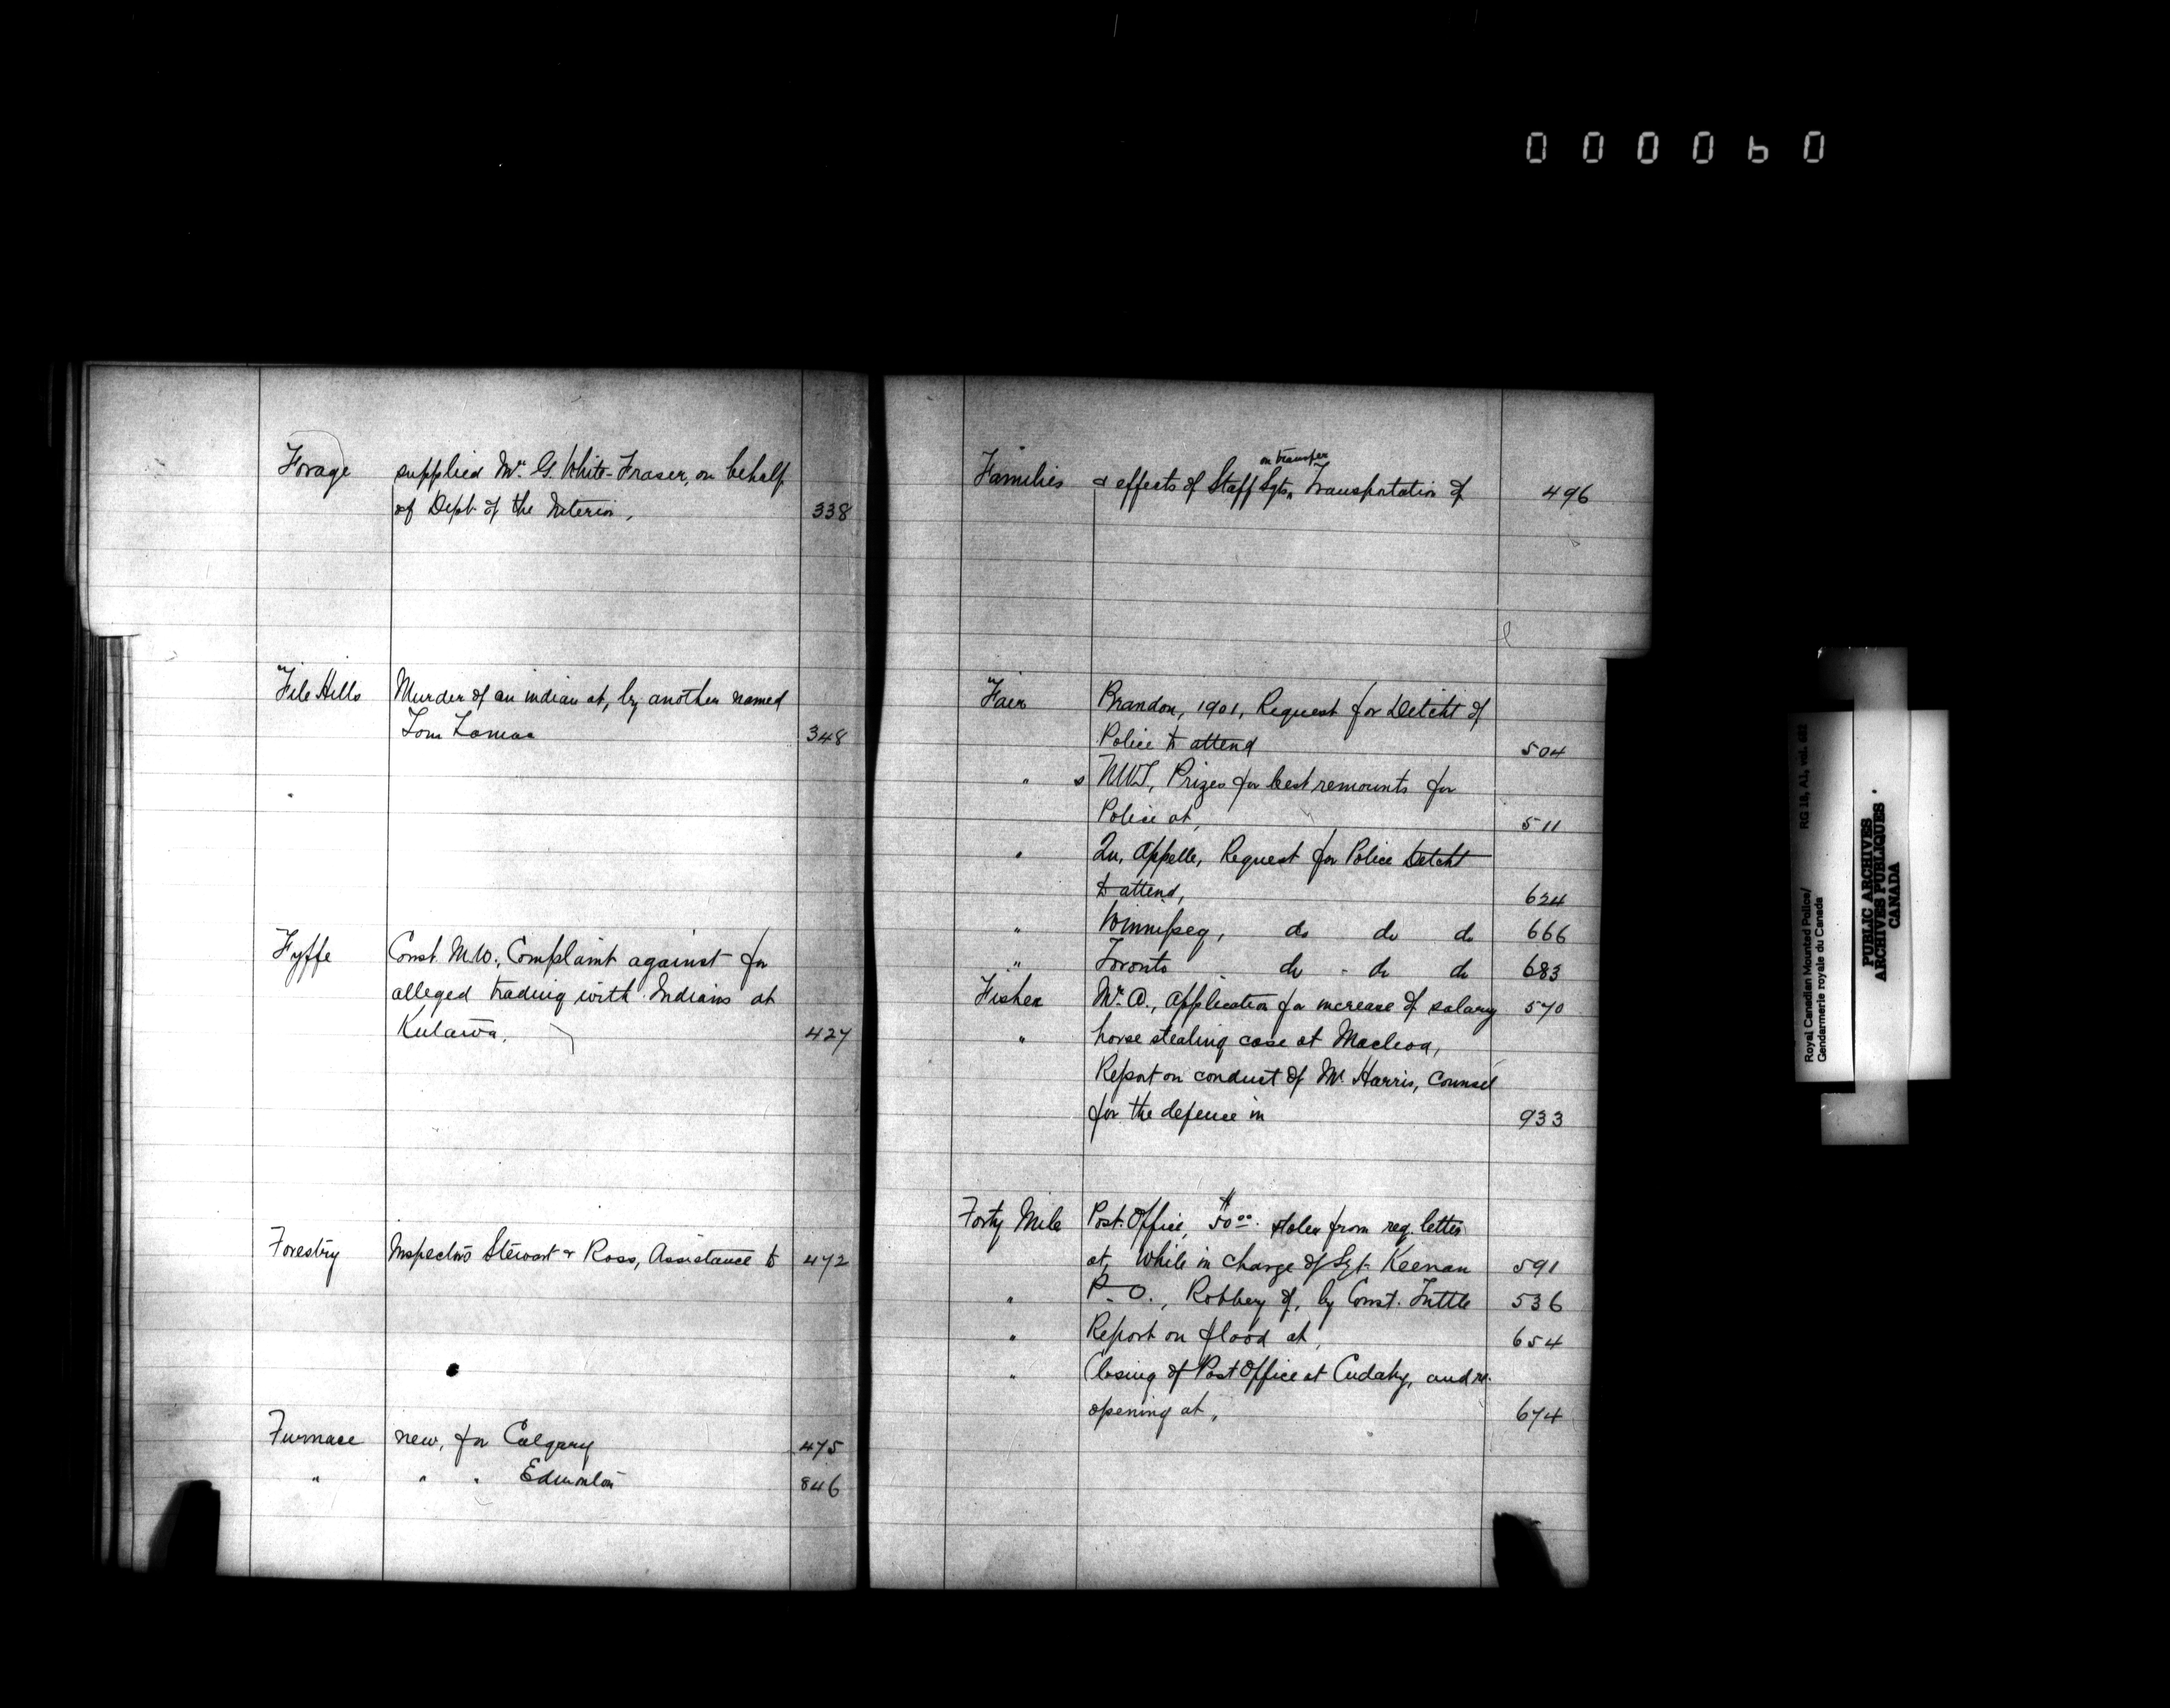 000060
Forage supplied Mr. G. White-Fraser, on behalf
of Dept of the Interior, 338
File Hills Murder of an indian at, by another named
Tom Lamac 348
Fyffe Const. M.W., Complaint against for
alleged trading with Indians at
Kutawa, 427
Forestry Inspectors Stewart & Ross, Assistance to 472
Furnace new, for Calgary 475
" " " Edmonton 846
Families & effects of Staff Sgts, on transfer Transportation of 496
Fair Brandon, 1901, Request for Detcht of
Police to attend 504
" s NWT, Prizes for best remounts for
Police at, 511
" Qu, Appelle, Request for Police Detcht
to attend, 624
" Winnipeg, do do do 666
" Toronto do - do do 683
Fisher Mr. A., application for increase of salary 570
" horse stealing case at Macleod,
Report on conduct of Mr Harris, Counsel
for the defence in 933
Forty Mile Post Office, $50.00 stolen from reg. letter
at, While in charge of Sgt. Keenan 591
" P.O., Robbery of, by Const. Tuttle 536
" Report on flood at, 654
" Closing of Post Office at Cudahy, and re-
opening at, 674
Royal Canadian Mounted Police/ RG 18, A1, vol. 682
Gendarmerie royale du Canada
PUBLIC ARCHIVES
ARCHIVES PUBLIQUES
CANADA